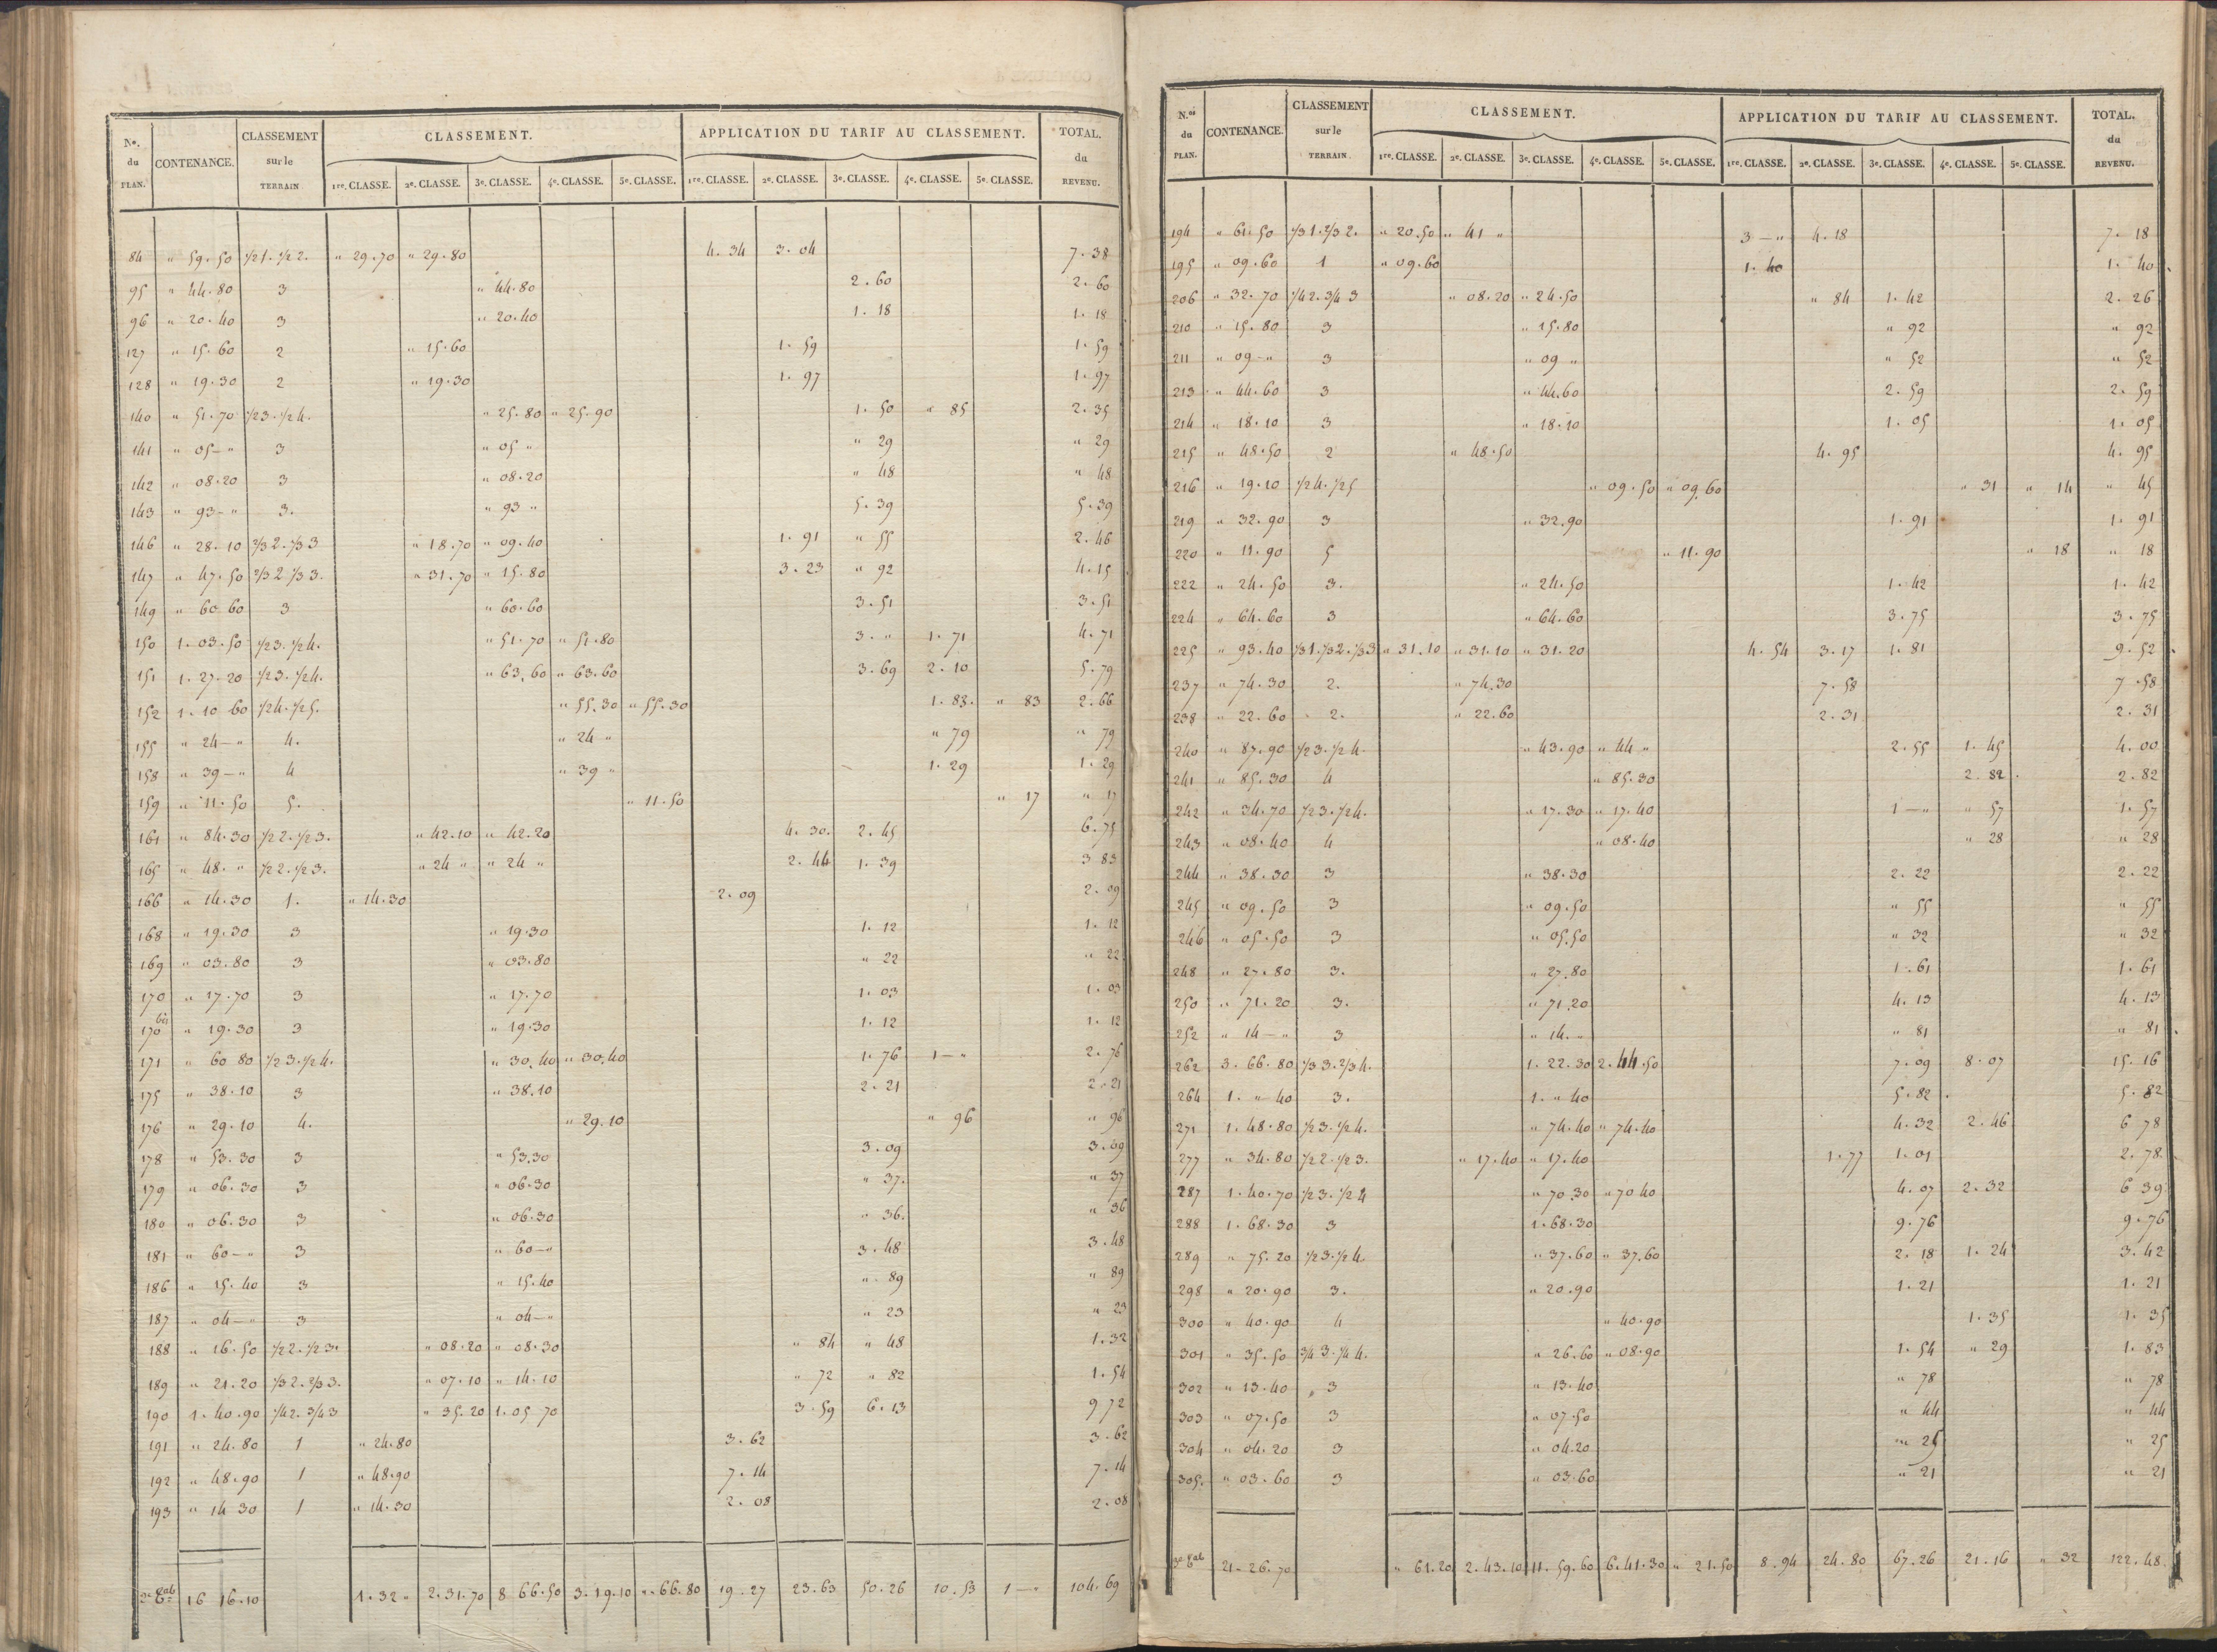 N°. du PLAN. CONTENANCE. CLASSEMENT sur le TERRAIN CLASSEMENT. APPLICATION DU TARIF AU CLASSEMENT. TOTAL. du REVENU.
1re. CLASSE. 2e. CLASSE. 3e. CLASSE. 4e. CLASSE. 5e. CLASSE. 1re. CLASSE. 2e. CLASSE. 3e. CLASSE. 4e. CLASSE. 5e. CLASSE.
84 " 59.50 1/2 1. 1/2 2. " 29.70 " 29.80 4.34 3.04 7.38
95 " 44.80 3 " 44.80 2.60 2.60
96 " 20.40 3 " 20.40 1.18 1.18
127 " 15.60 2 " 15.60 1.59 1.59
128 " 19.30 2 " 19.30 1.97 1.97
140 " 51.70 1/2 3. 1/2 4. " 25.80 " 25.90 1.50 " 85 2.35
141 " 05-" 3 " 05 " " 29 " 29
142 " 08.20 3 " 08.20 " 48 " 48
143 " 93-" 3. " 93 " 5.39 5.39
146 " 28.10 2/3 2. 1/3 3 " 18.70 " 09.40 1.91 " 55 2.46
147 " 47.50 2/3 2 1/3 3. " 31.70 " 15.80 3.23 " 92 4.15
149 " 60.60 3 " 60.60 3.51 3.51
150 1.03.50 1/2 3. 1/2 4. " 51.70 " 51.80 3." 1.71 4.71
151 1.27.20 1/2 3. 1/2 4. " 63.60 " 63.60 3.69 2.10 5.79
152 1.10 60 1/2 4. 1/2 5. " 55.30 " 55.30 1.83. " 83 2.66
155 " 24-" 4. " 24 " " 79 " 79
158 " 39-" 4 " 39 " 1.29 1.29
159 " 11.50 5. " 11.50 " 17 " 17
161 " 84.30 1/2 2. 1/2 3. " 42.10 " 42.20 4.30. 2.45 6.75
165 " 48. " 1/2 2. 1/2 3. " 24 " " 24 " 2.44 1.39 3 83
166 " 14.30 1. " 14.30 2.09 2.09
168 " 19.30 3 " 19.30 1.12 1.12
169 " 03.80 3 " 03.80 " 22 " 22
170 " 17.70 3 " 17.70 1.03 1.03
170 bis " 19.30 3 " 19.30 1.12 1.12
171 " 60 80 1/2 3. 1/2 4. " 30.40 " 30.40 1.76 1-" 2.76
175 " 38.10 3 " 38.10 2.21 2.21
176 " 29.10 4. " 29.10 " 96 " 96
178 " 53.30 3 " 53.30 3.09 3.09
179 " 06.30 3 " 06.30 " 37. " 37
180 " 06.30 3 " 06.30 " 36. " 36
181 " 60-" 3 " 60-" 3.48 3.48
186 " 15.40 3 " 15.40 " 89 " 89
187 " 04-" 3 " 04-" " 23 " 23
188 " 16.50 1/2 2. 1/2 3. " 08.20 " 08.30 " 84 " 48 1.32
189 " 21.20 1/3 2. 2/3 3. " 07.10 " 14.10 " 72 " 82 1.54
190 1.40.90 1/4 2. 3/4 3 " 35.20 1.05 70 3.59 6.13 9 72
191 " 24.80 1 " 24.80 3.62 3.62
192 " 48.90 1 " 48.90 7.14 7.14
193 " 14 30 1 " 14.30 2.08 2.08
16 16.10 1.32 " 2.31.70 8 66.50 3.19.10 " 66.80 19.27 23.63 50.26 10.53 1-" 104.69
N.os du PLAN. CONTENANCE. CLASSEMENT sur le TERRAIN. CLASSEMENT. APPLICATION DU TARIF AU CLASSEMENT. TOTAL. du REVENU.
1re. CLASSE. 2e. CLASSE. 3e. CLASSE. 4e. CLASSE. 5e. CLASSE. 1re. CLASSE. 2e. CLASSE. 3e. CLASSE. 4e. CLASSE. 5e. CLASSE.
194 " 61.50 1/3 1. 2/3 2. " 20.50 " 41 " 3-" 4.18 7.18
195 " 09.60 1 " 09.60 1.40 1.40
206 " 32.70 1/4 2. 3/4 3 " 08.20 " 24.50 " 84 1.42 2.26
210 " 15.80 3 " 15.80 " 92 " 92
211 " 09-" 3 " 09 " " 52 " 52
213 " 44.60 3 " 44.60 2.59 2.59
214 " 18.10 3 " 18.10 1.05 1.05
215 " 48.50 2 " 48.50 4.95 4.95
216 " 19.10 1/2 4. 1/2 5 " 09.50 " 09.60 " 31 " 14 " 45
219 " 32.90 3 " 32.90 1.91 1.91
220 " 11.90 5 " 11.90 " 18 " 18
222 " 24.50 3. " 24.50 1.42 1.42
224 " 64.60 3 " 64.60 3.75 3.75
225 " 93.40 1/3 1. 1/3 2. 1/3 3 " 31.10 " 31.10 " 31.20 4.54 3.17 1.81 9.52
237 " 74.30 2. " 74.30 7.58 7.58
238 " 22.60 2. " 22.60 2.31 2.31
240 " 87.90 1/2 3. 1/2 4. " 43.90 " 44 " 2.55 1.45 4.00
241 " 85.30 4 " 85.30 2.82 2.82
242 " 34.70 1/2 3. 1/2 4. " 17.30 " 17.40 1-" " 57 1.57
243 " 08.40 4 " 08.40 " 28 " 28
244 " 38.30 3 " 38.30 2.22 2.22
245 " 09.50 3 " 09.50 " 55 " 55
246 " 05.50 3 " 05.50 " 32 " 32
248 " 27.80 3. " 27.80 1.61 1.61
250 " 71.20 3. " 71.20 4.13 4.13
252 " 14-" 3 " 14." " 81 " 81
262 3.66.80 1/3 3. 2/3 4. 1.22.30 2.44.50 7.09 8.07 15.16
264 1. " 40 3. 1. " 40 5.82 5.82
271 1.48.80 1/2 3. 1/2 4. " 74.40 " 74.40 4.32 2.46 6 78
277 " 34.80 1/2 2. 1/2 3. " 17.40 " 17.40 1.77 1.01 2.78
287 1.40.70 1/2 3. 1/2 4 " 70.30 " 70 40 4.07 2.32 6 39
288 1.68.30 3 1.68.30 9.76 9.76
289 " 75.20 1/2 3. 1/2 4. " 37.60 " 37.60 2.18 1.24 3.42
298 " 20.90 3. " 20.90 1.21 1.21
300 " 40.90 4 " 40.90 1.35 1.35
301 " 35.50 3/4 3. 1/4 4. " 26.60 " 08.90 1.54 " 29 1.83
302 " 13.40 3 " 13.40 " 78 " 78
303 " 07.50 3 " 07.50 " 44 " 44
304 " 04.20 3 " 04.20 " 25 " 25
305. " 03.60 3 " 03.60 " 21 " 21
21.26.70 " 61.20 2.43.10 11.59.60 6.41.30 " 21.50 8.94 24.80 67.26 21.16 " 32 122.48